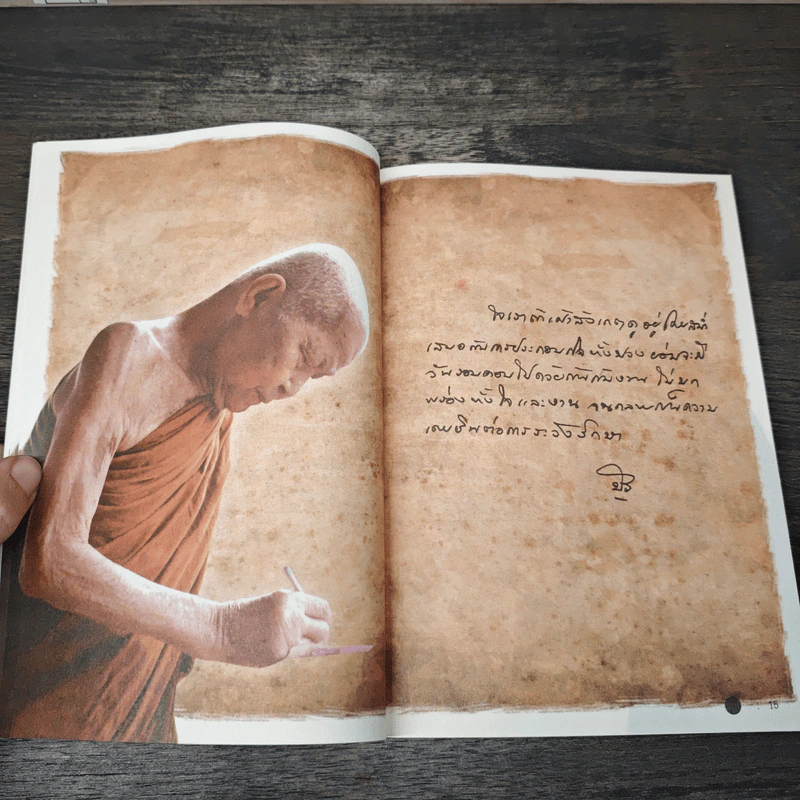 ใจเราถ้าเฝ้าสังเกตดูอยู่โดยสม่ำ
เสมอกับการประกอบกิจทั้งปวง ย่อมจะมี
รอบคอบไปด้วยกันกับงาน ไม่บก
พร่องทั้งใจและงาน จนกลายเป็นความ
เคยชินต่อการระวังรักษา
15